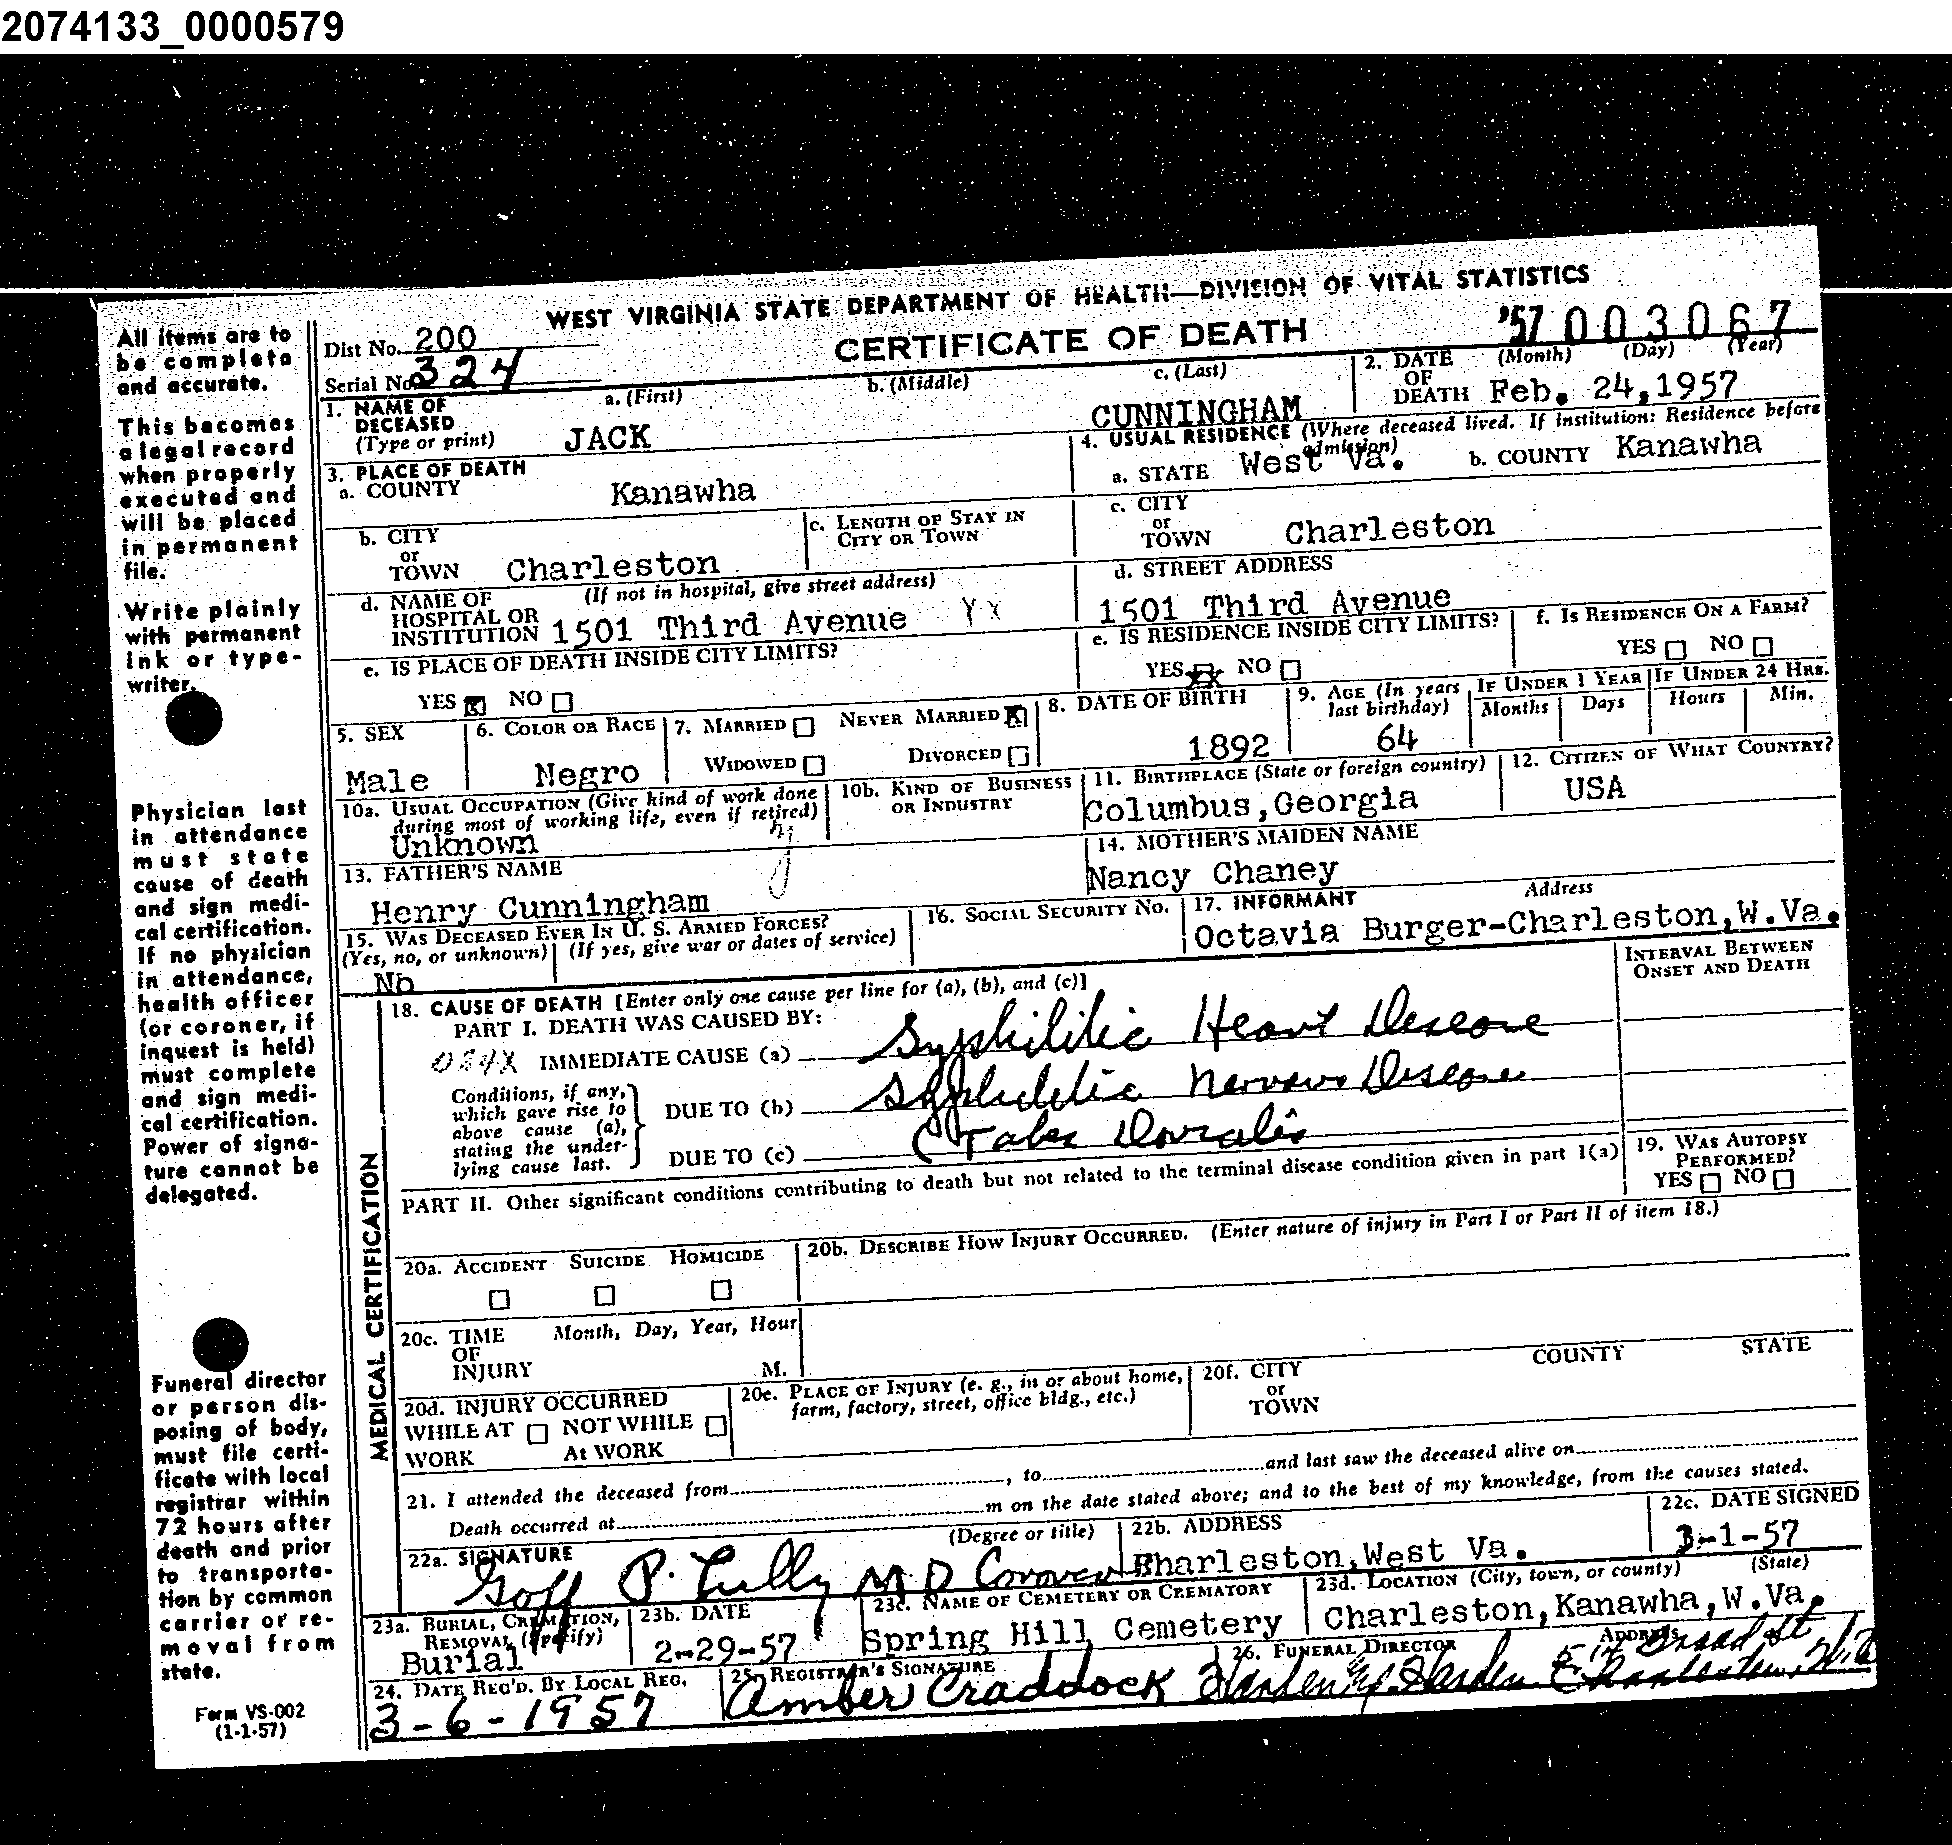 2074133_0000579
WEST VIRGINIA STATE DEPARTMENT OF HEALTH—DIVISION OF VITAL STATISTICS
CERTIFICATE OF DEATH
'57 003067
Dist No. 200
Serial No. 324
All items are to
be complete
and accurate.
This becomes
a legal record
when properly
executed and
will be placed
in permanent
file.
Write plainly
with permanent
ink or type-
writer.
Physician last
in attendance
must state
cause of death
and sign medi-
cal certification.
If no physician
in attendance,
health officer
(or coroner, if
inquest is held)
must complete
and sign medi-
cal certification.
Power of signa-
ture cannot be
delegated.
Funeral director
or person dis-
posing of body,
must file certi-
ficate with local
registrar within
72 hours after
death and prior
to transporta-
tion by common
carrier or re-
moval from
state.
Form VS-002
(1-1-57)
1. NAME OF DECEASED (Type or print)
a. (First) b. (Middle) c. (Last)
JACK CUNNINGHAM
2. DATE OF DEATH (Month) (Day) (Year)
Feb. 24,1957
3. PLACE OF DEATH
a. COUNTY Kanawha
b. CITY or TOWN Charleston
c. LENGTH OF STAY IN CITY OR TOWN
d. NAME OF HOSPITAL OR INSTITUTION (If not in hospital, give street address)
1501 Third Avenue
e. IS PLACE OF DEATH INSIDE CITY LIMITS?
YES X NO
4. USUAL RESIDENCE (Where deceased lived. If institution: Residence before admission)
a. STATE West Va. b. COUNTY Kanawha
c. CITY or TOWN Charleston
d. STREET ADDRESS
1501 Third Avenue
e. IS RESIDENCE INSIDE CITY LIMITS?
YES XX NO
f. IS RESIDENCE ON A FARM?
YES NO
5. SEX
Male
6. COLOR OR RACE
Negro
7. MARRIED NEVER MARRIED X
WIDOWED DIVORCED
8. DATE OF BIRTH
1892
9. AGE (In years last birthday)
64
IF UNDER 1 YEAR
Months Days
IF UNDER 24 HRS.
Hours Min.
10a. USUAL OCCUPATION (Give kind of work done during most of working life, even if retired)
Unknown
10b. KIND OF BUSINESS OR INDUSTRY
11. BIRTHPLACE (State or foreign country)
Columbus,Georgia
12. CITIZEN OF WHAT COUNTRY?
USA
13. FATHER'S NAME
Henry Cunningham
14. MOTHER'S MAIDEN NAME
Nancy Chaney
15. WAS DECEASED EVER IN U. S. ARMED FORCES?
(Yes, no, or unknown) (If yes, give war or dates of service)
No
16. SOCIAL SECURITY NO.
17. INFORMANT Address
Octavia Burger-Charleston,W.Va.
MEDICAL CERTIFICATION
18. CAUSE OF DEATH [Enter only one cause per line for (a), (b), and (c)]
INTERVAL BETWEEN ONSET AND DEATH
PART I. DEATH WAS CAUSED BY:
IMMEDIATE CAUSE (a) Syphilitic Heart Disease
Conditions, if any, which gave rise to above cause (a), stating the underlying cause last.
DUE TO (b) Syphilitic Nervous Disease
DUE TO (c) (Tabes Dorsalis
PART II. Other significant conditions contributing to death but not related to the terminal disease condition given in part 1(a)
19. WAS AUTOPSY PERFORMED?
YES NO
20a. ACCIDENT SUICIDE HOMICIDE
20b. DESCRIBE HOW INJURY OCCURRED. (Enter nature of injury in Part I or Part II of item 18.)
20c. TIME OF INJURY Month, Day, Year, Hour
M.
20d. INJURY OCCURRED
WHILE AT WORK NOT WHILE At WORK
20e. PLACE OF INJURY (e. g., in or about home, farm, factory, street, office bldg., etc.)
20f. CITY or TOWN COUNTY STATE
21. I attended the deceased from , to and last saw the deceased alive on
Death occurred at m on the date stated above; and to the best of my knowledge, from the causes stated.
22a. SIGNATURE (Degree or title)
Goff P. Lilly M D Coroner
22b. ADDRESS
Charleston,West Va.
22c. DATE SIGNED
3-1-57
23a. BURIAL, CREMATION, REMOVAL (Specify)
Burial
23b. DATE
2-29-57
23c. NAME OF CEMETERY OR CREMATORY
Spring Hill Cemetery
23d. LOCATION (City, town, or county) (State)
Charleston,Kanawha,W.Va.
24. DATE REC'D. BY LOCAL REG.
3-6-1957
25. REGISTRAR'S SIGNATURE
Amber Craddock
26. FUNERAL DIRECTOR ADDRESS
Harden & Harden Broad St Charleston, W.Va